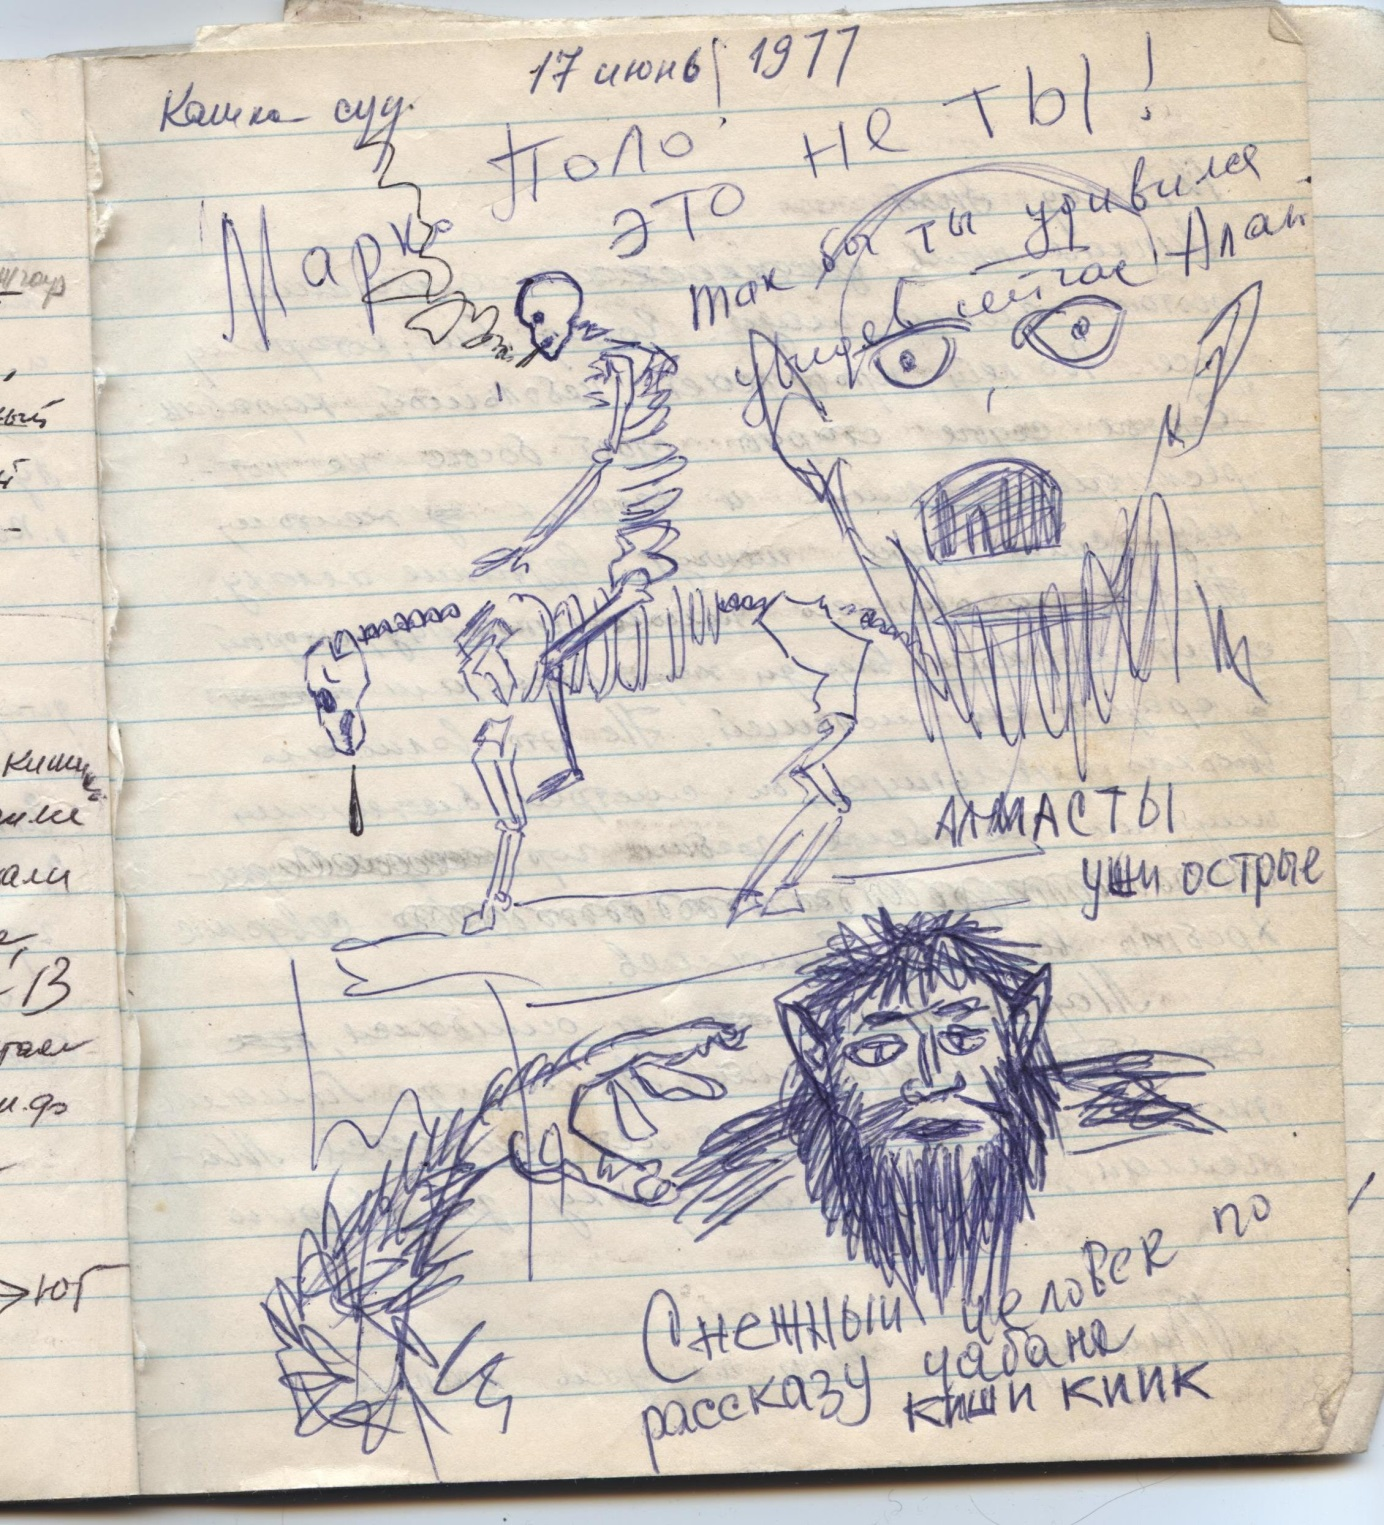 17 июнь 1977
Кашка суу.
Марко Поло!
это не ты!
так бы ты удивился
увидев сейчас Алай
АЛМАСТЫ
уши острые
Снежный человек по
рассказу чабана
киши киик
ный
киши
али
-В
→ЮГ